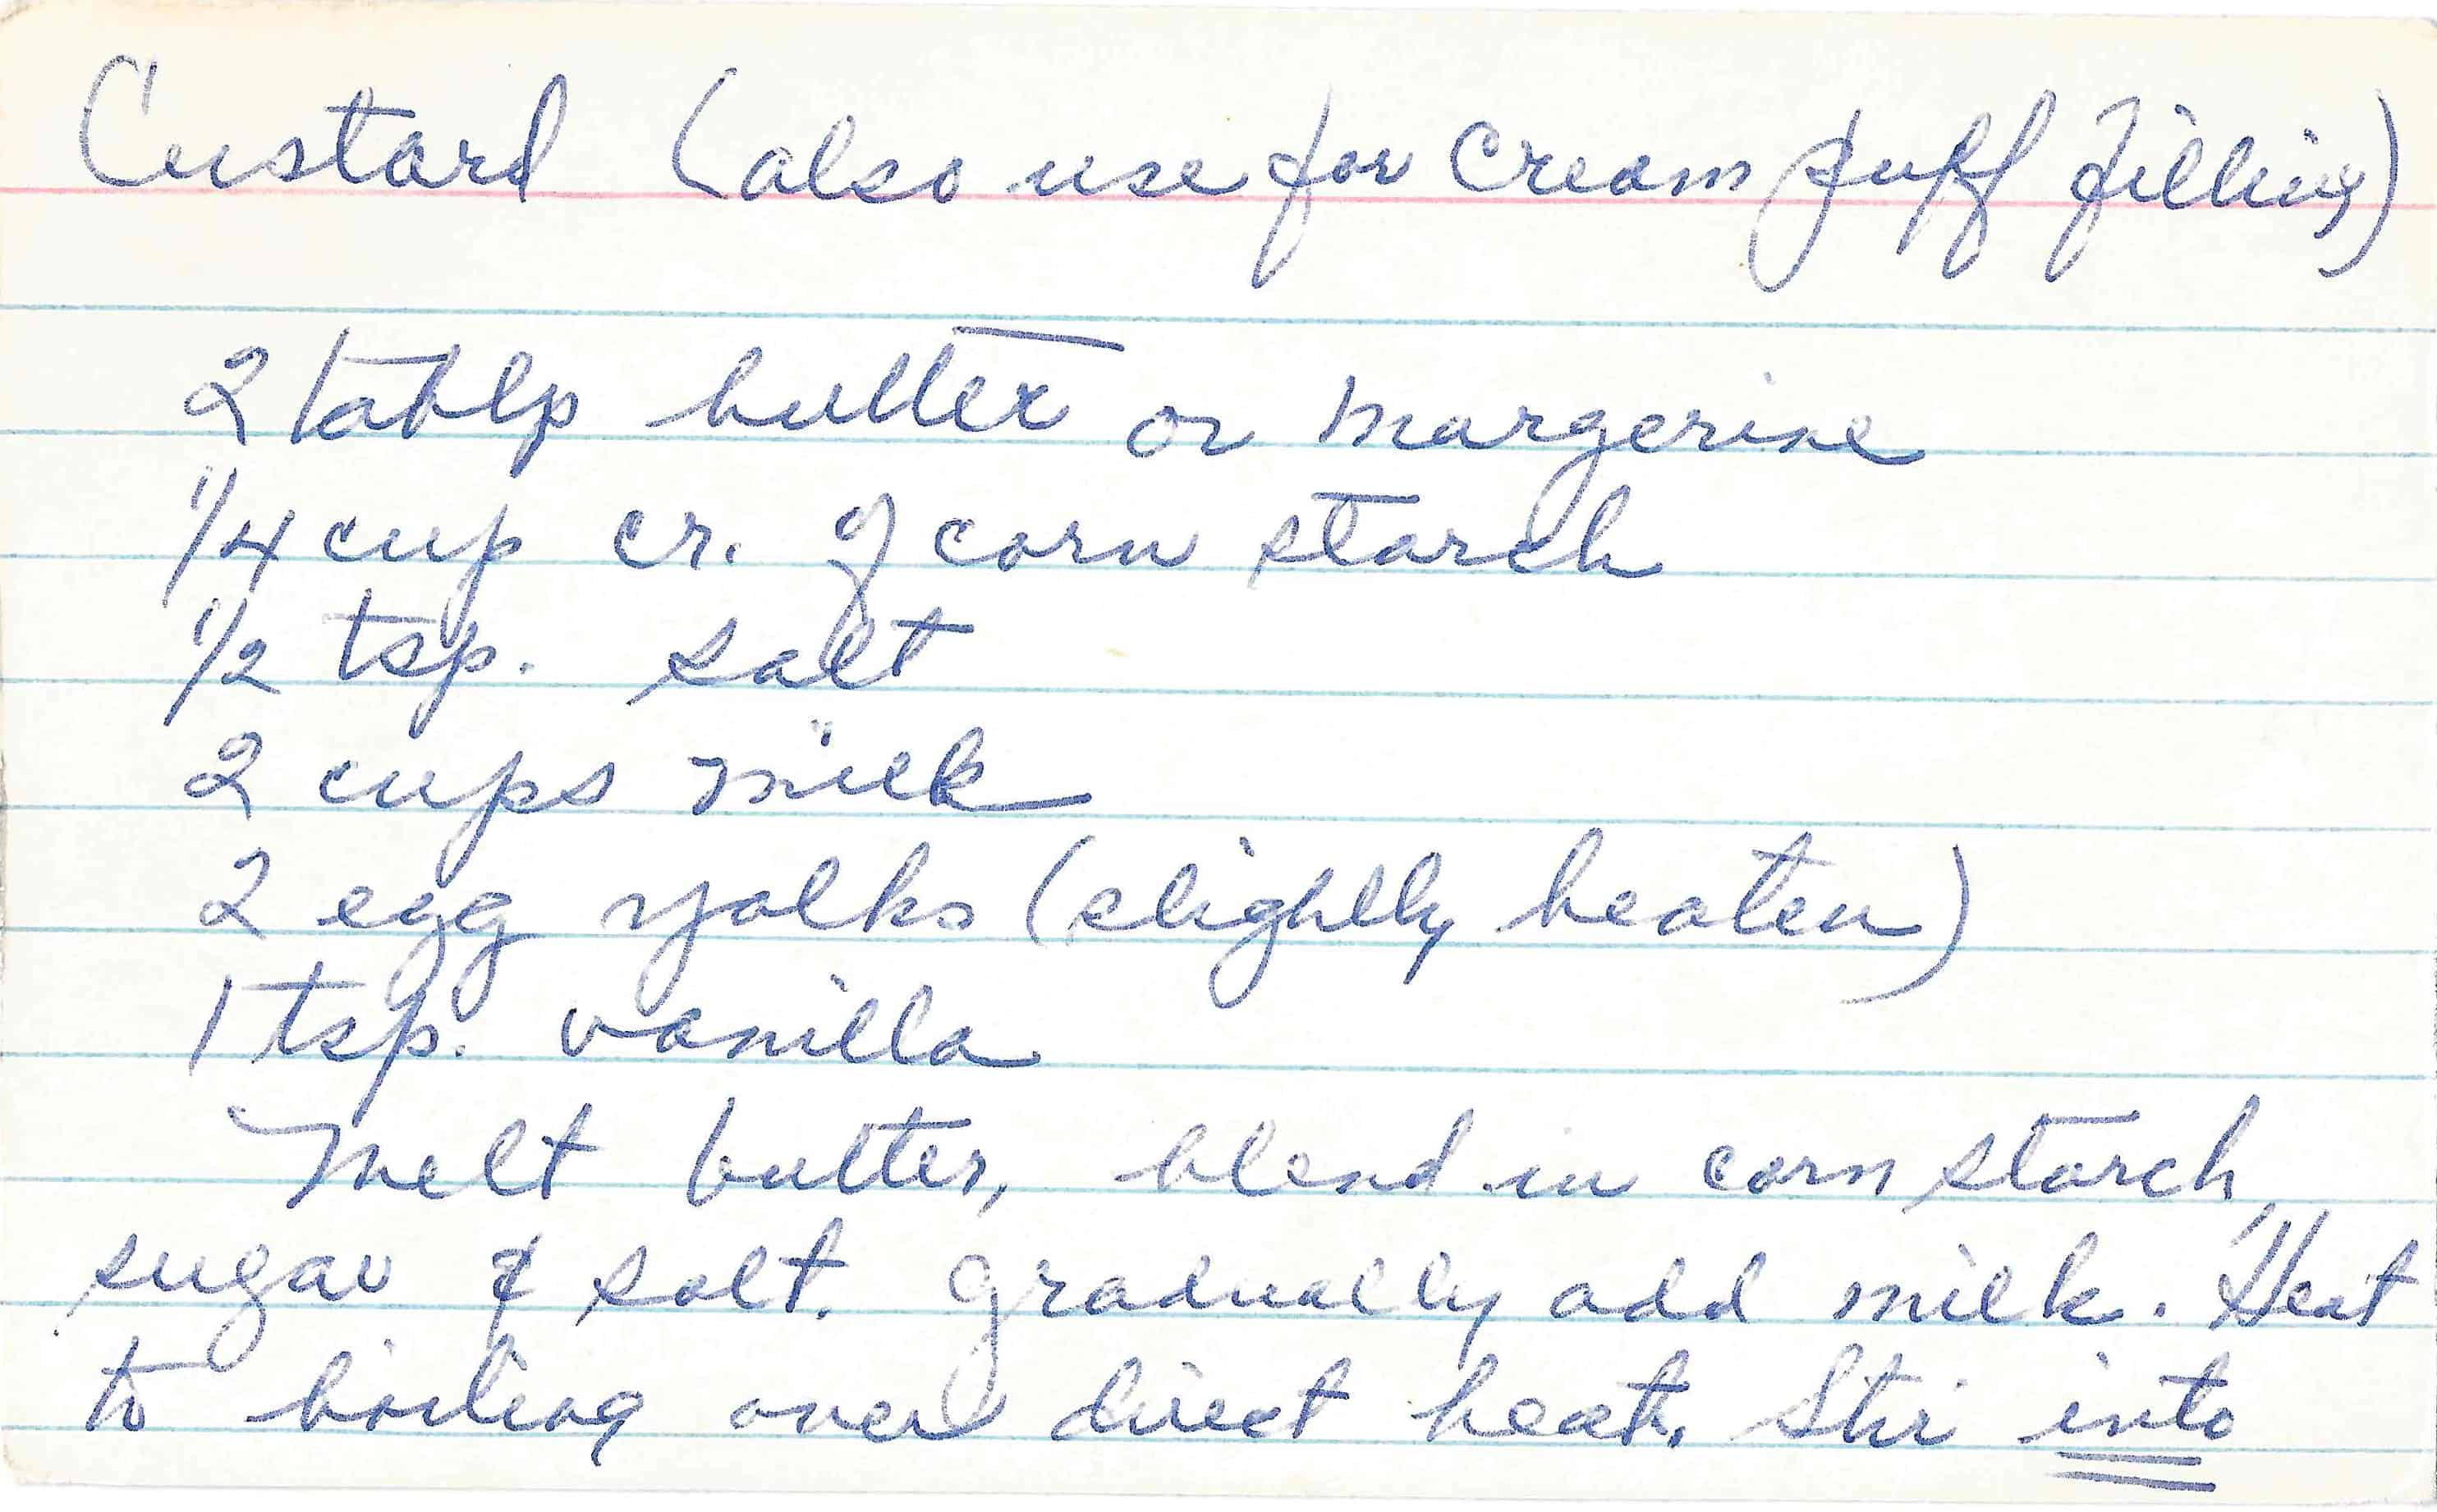 Custard (also use for Cream puff filling)
2 tablp butter or margerine
1/4 cup cr. of corn starch
1/2 tsp. salt
2 cups milk
2 egg yolks (slightly beaten)
1 tsp. vanilla
Melt butter, blend in corn starch,
sugar & salt. Gradually add milk. Heat
to boiling over direct heat. Stir into